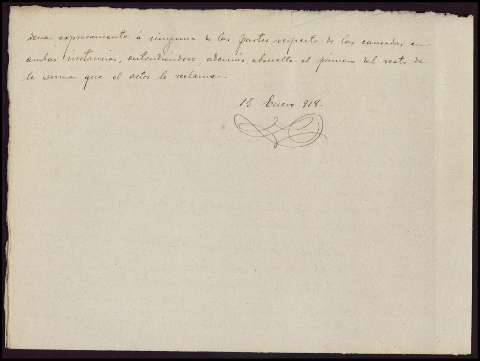 dena expresamente á ninguna de las partes respecto de las causadas en
ambas instancias, entendiendose además absuelto el primero del resto de
la suma que el actor le reclama.
15 Enero 918.